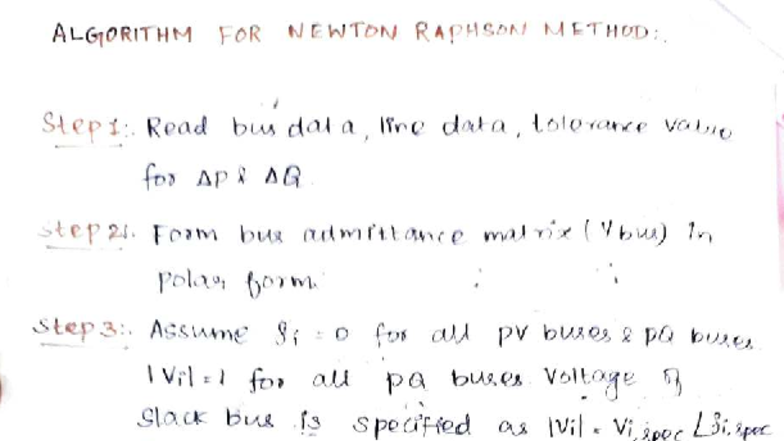 ALGORITHM FOR NEWTON RAPHSON METHOD:.
Step 1:. Read bus data, line data, tolerance value
for ΔP & ΔQ.
Step 2:. Form bus admittance matrix (Ybus) in
polar form.
Step 3:. Assume δi = 0 for all PV buses & PQ buses.
|Vi| = 1 for all PQ buses. Voltage of
slack bus is specified as |Vi| = Vi,spec ∠δi,spec